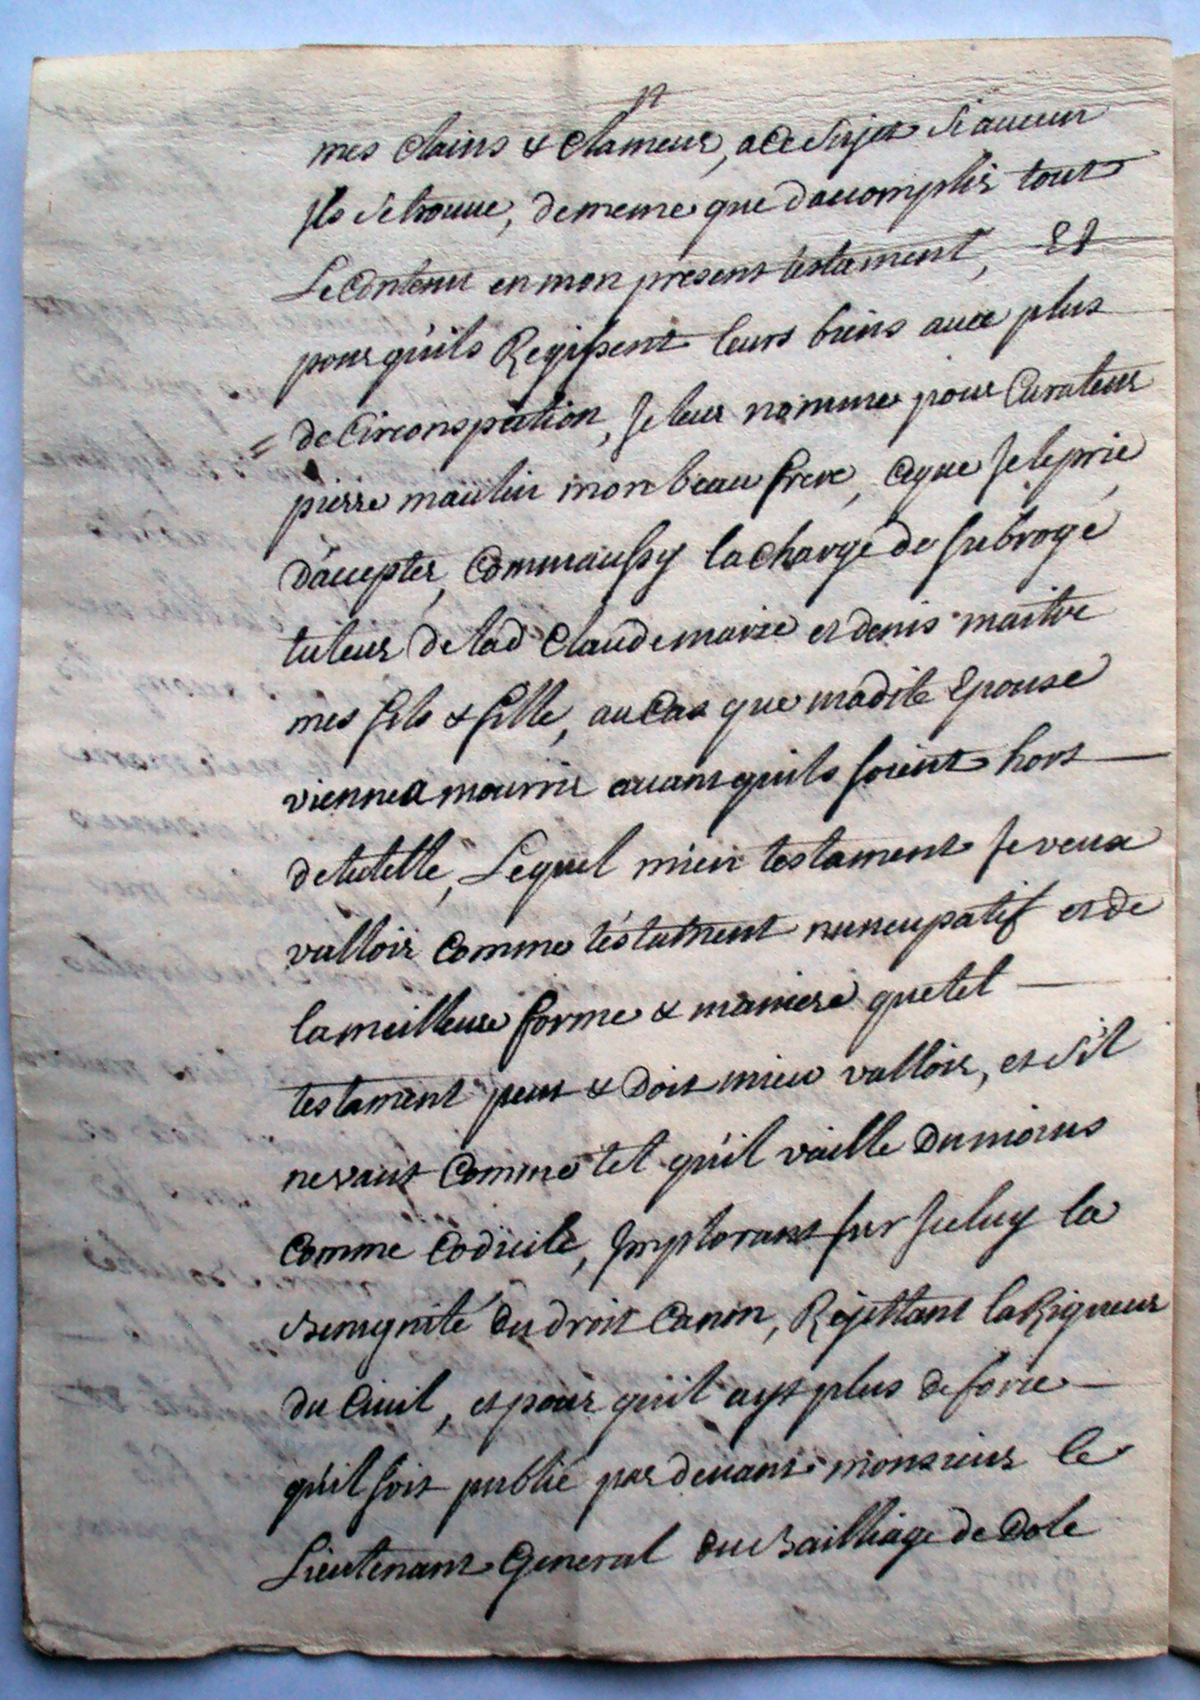 mes clains & clameur, a ce sujet si aucun
Ils se trouue, de meme que daccomplir tout
Le contenu en mon present testament, Et
pour quils Regissent leurs biens auec plus
= de Circonspection, Je leur nomme pour Curateur
pierre maulin mon beau frere, ce que Je le prie
d'accepter, Comm'aussy la charge de subrogé
tuteur de lad Claudemarie et denis maitre
mes fils & fille, au Cas que madite Epouse
vienne a mourrir auant quils soient hors
de tutelle, Lequel mien testament Je veux
valloir comme téstatment nuncupatif et de
la meilleure forme & maniere que tel
testament peut & doit mieu valloir, et s'il
ne vaut Comme tel qu'il vaille du moins
Comme Codicile, Jmplorant sur Jceluy la
Benignité du droit Canon, Rejettant la Rigueur
du Ciuil, et pour qu'il ayt plus de force
qu'il soit publié par deuant monsieur le
Lieutenant General du Bailliage de Dole